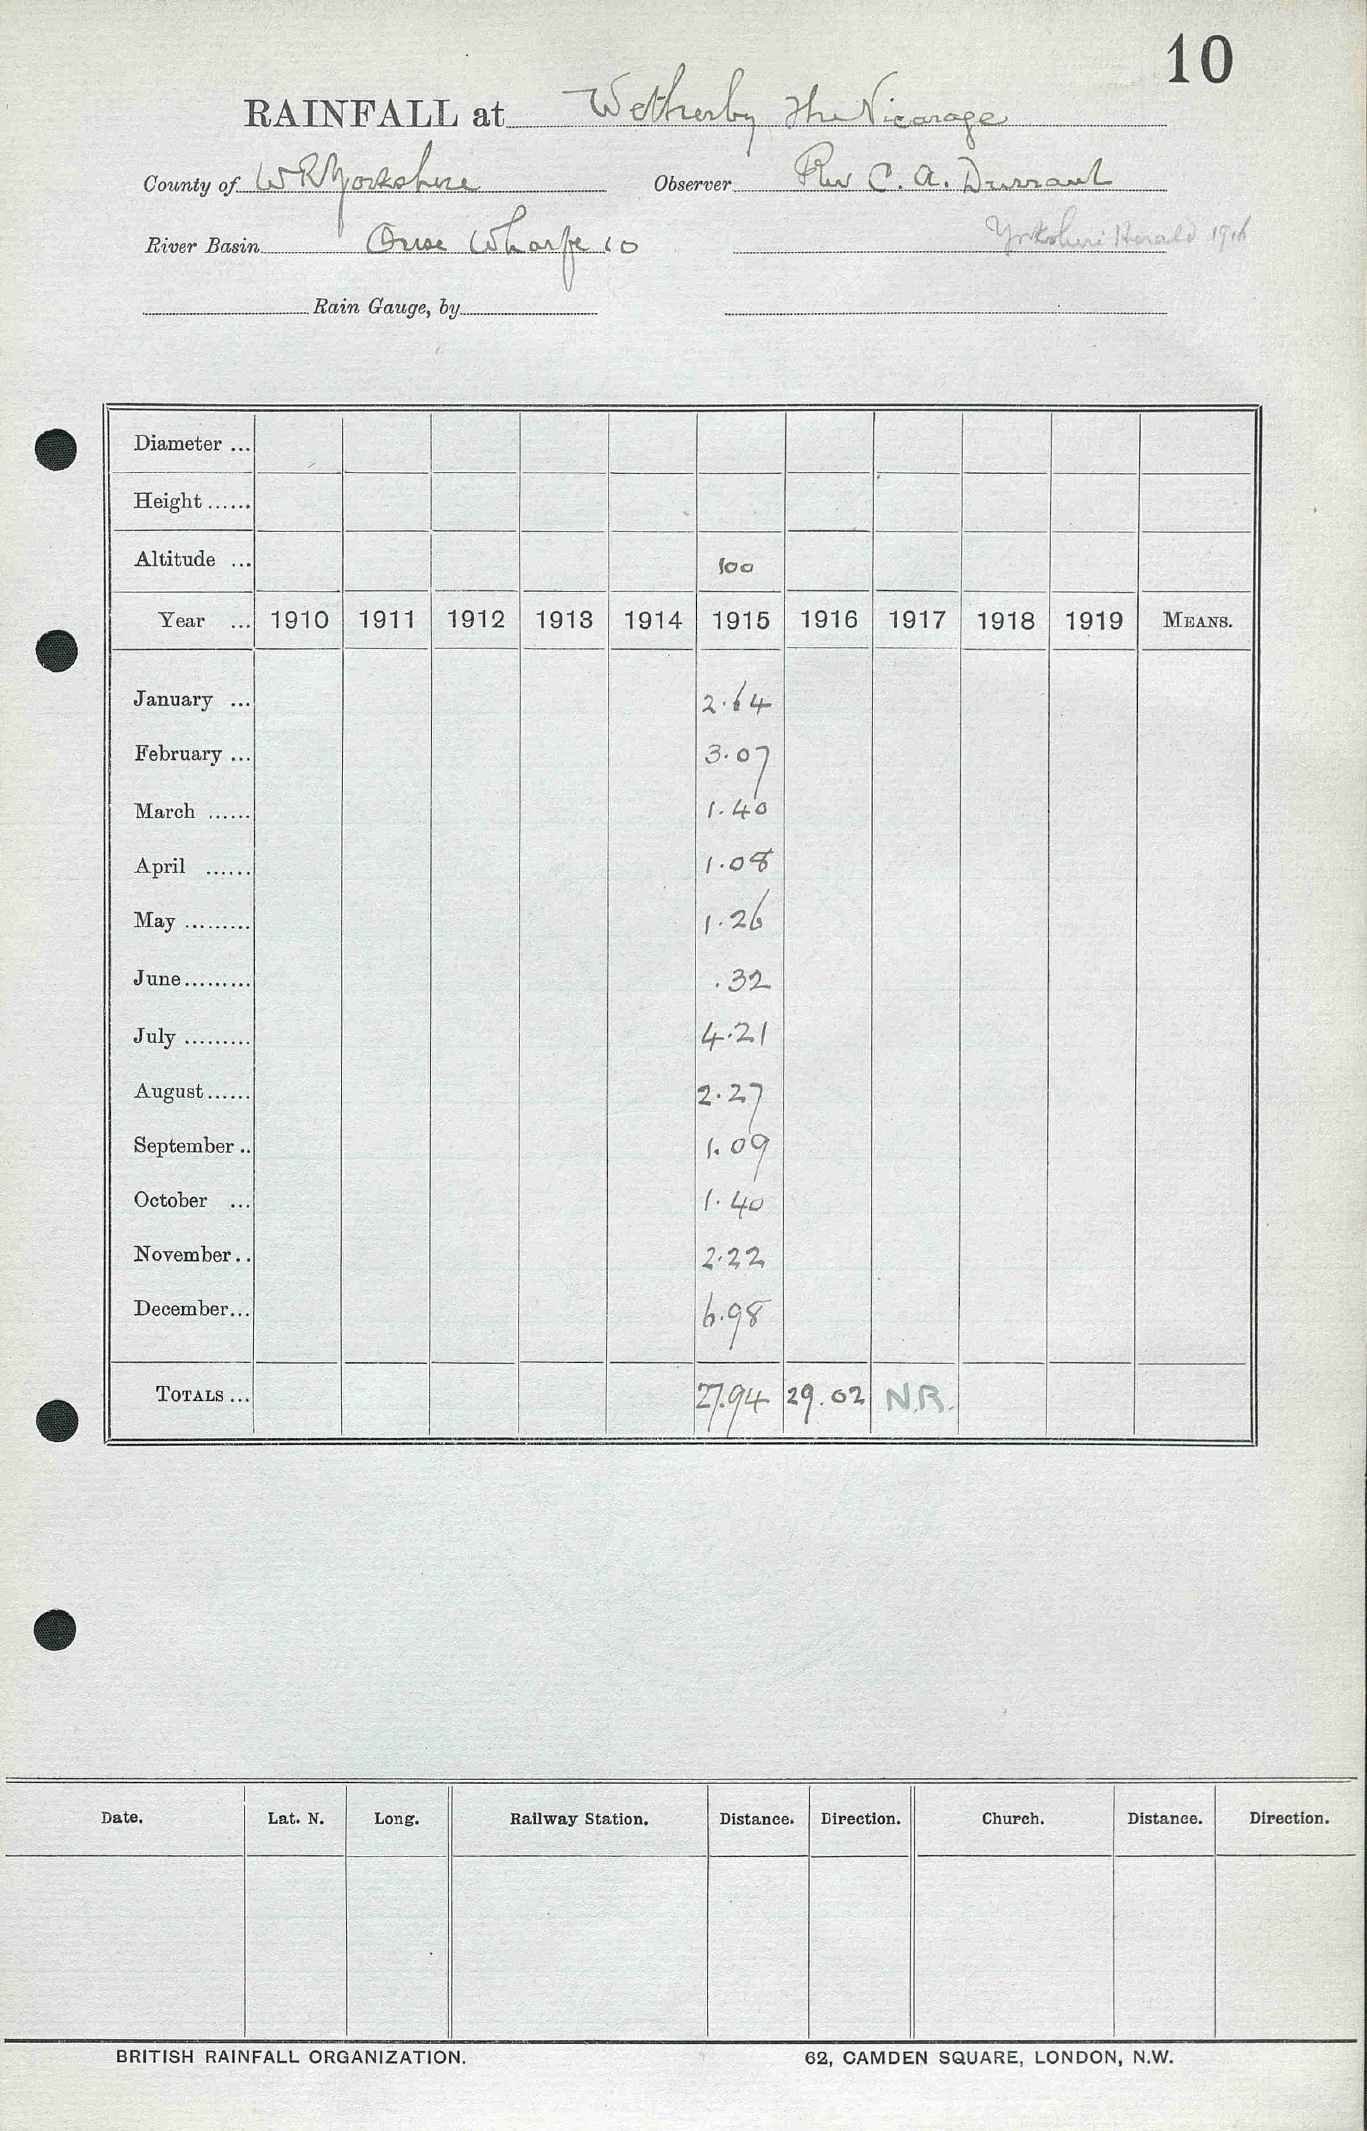 10
RAINFALL at Wetherby The Vicarage
County of W R Yorkshire Observer Rev C. A. Durrant
River Basin Ouse Wharfe 10 Yorkshire Herald 1916
Rain Gauge, by
Diameter ...
Height ......
Altitude ... 100
Year ... 1910 1911 1912 1913 1914 1915 1916 1917 1918 1919 MEANS.
January ... 2.64
February ... 3.07
March ...... 1.40
April ...... 1.08
May ......... 1.26
June......... .32
July ......... 4.21
August...... 2.27
September .. 1.09
October ... 1.40
November .. 2.22
December... 6.98
TOTALS ... 27.94 29.02 N.R.
Date. Lat. N. Long. Railway Station. Distance. Direction. Church. Distance. Direction.
BRITISH RAINFALL ORGANIZATION. 62, CAMDEN SQUARE, LONDON, N.W.